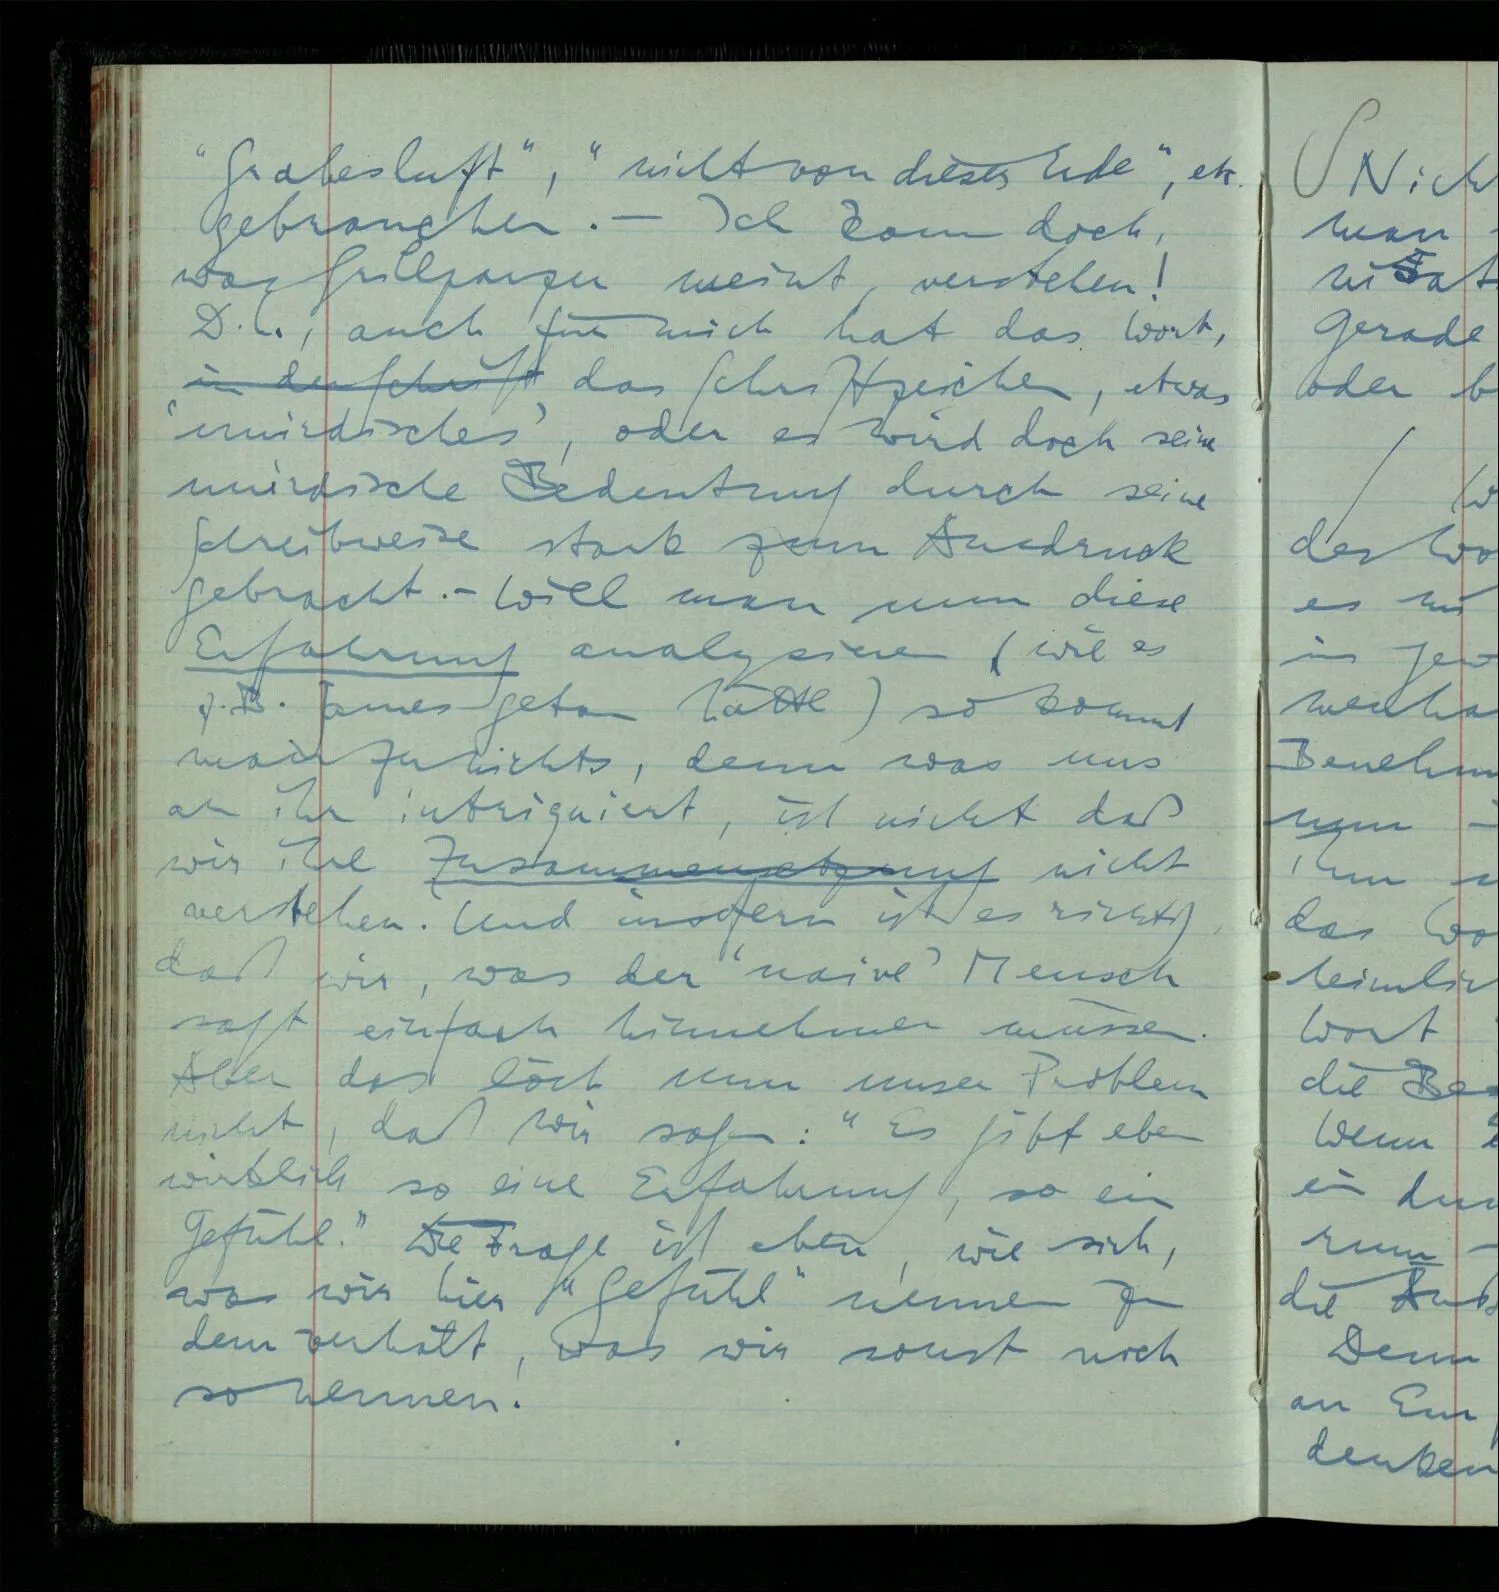 "Grabesluft", "nicht von dieser Erde", etc.
gebrauchen. — Ich kann doch,
was Grillparzer meint, verstehen!
D.h., auch für mich hat das Wort,
in der Schrift das Schriftzeichen, etwas
'unirdisches', oder es wird doch seine
unirdische Bedeutung durch seine
Schreibweise stark zum Ausdruck
gebracht. – Will man nun diese
Erfahrung analysieren (wie es
z.B. James getan hätte) so kommt
man zu nichts, denn was uns
an ihr intriguiert, ist nicht daß
wir ihre Zusammensetzung nicht
verstehen. Und insofern ist es richtig,
daß wir, was der 'naive' Mensch
sagt einfach hinnehmen müssen.
Aber das löst nun unser Problem
nicht, daß wir sagen: "Es gibt eben
wirklich so eine Erfahrung, so ein
Gefühl." Die Frage ist eben, wie sich,
was wir hier "Gefühl" nennen zu
dem verhält, was wir sonst noch
so nennen.
man
gerade
oder
des
es
in
das
Wort
die
Wenn
ein
die
Denn
an
denken